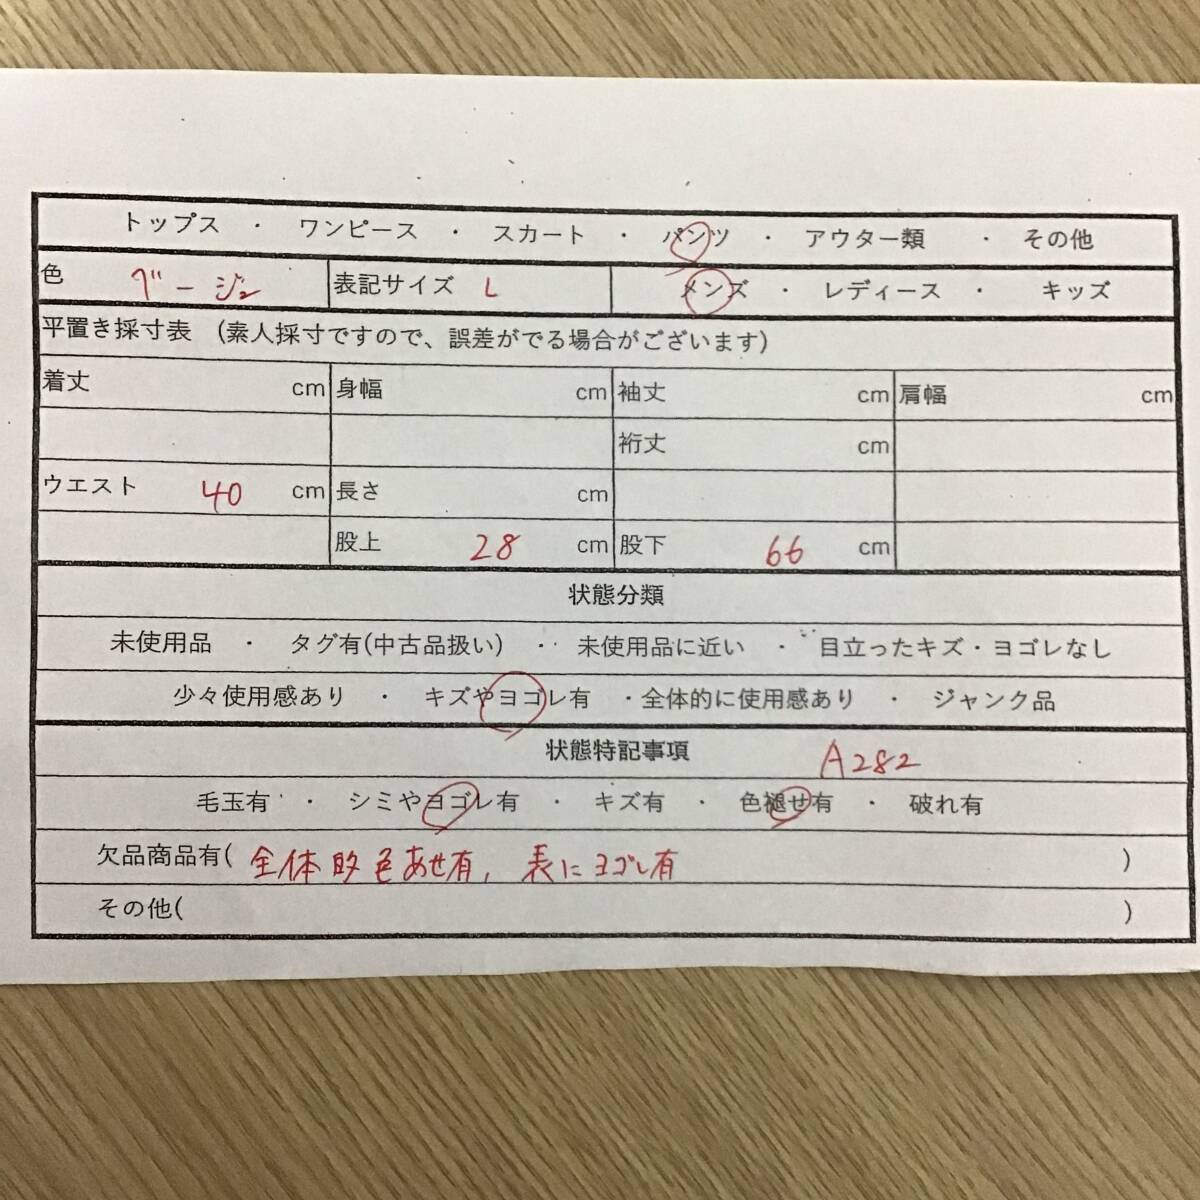 トップス ・ ワンピース ・ スカート ・ パンツ ・ アウター類 ・ その他
色 ベージュ 表記サイズ L メンズ ・ レディース ・ キッズ
平置き採寸表 (素人採寸ですので、誤差がでる場合がございます)
着丈 cm 身幅 cm 袖丈 cm 肩幅 cm
裄丈 cm
ウエスト 40 cm 長さ cm
股上 28 cm 股下 66 cm
状態分類
未使用品 ・ タグ有(中古品扱い) ・ 未使用品に近い ・ 目立ったキズ・ヨゴレなし
少々使用感あり ・ キズやヨゴレ有 ・全体的に使用感あり ・ ジャンク品
状態特記事項 A282
毛玉有 ・ シミやヨゴレ有 ・ キズ有 ・ 色褪せ有 ・ 破れ有
欠品商品有( 全体的色あせ有, 表にヨゴレ有 )
その他( )